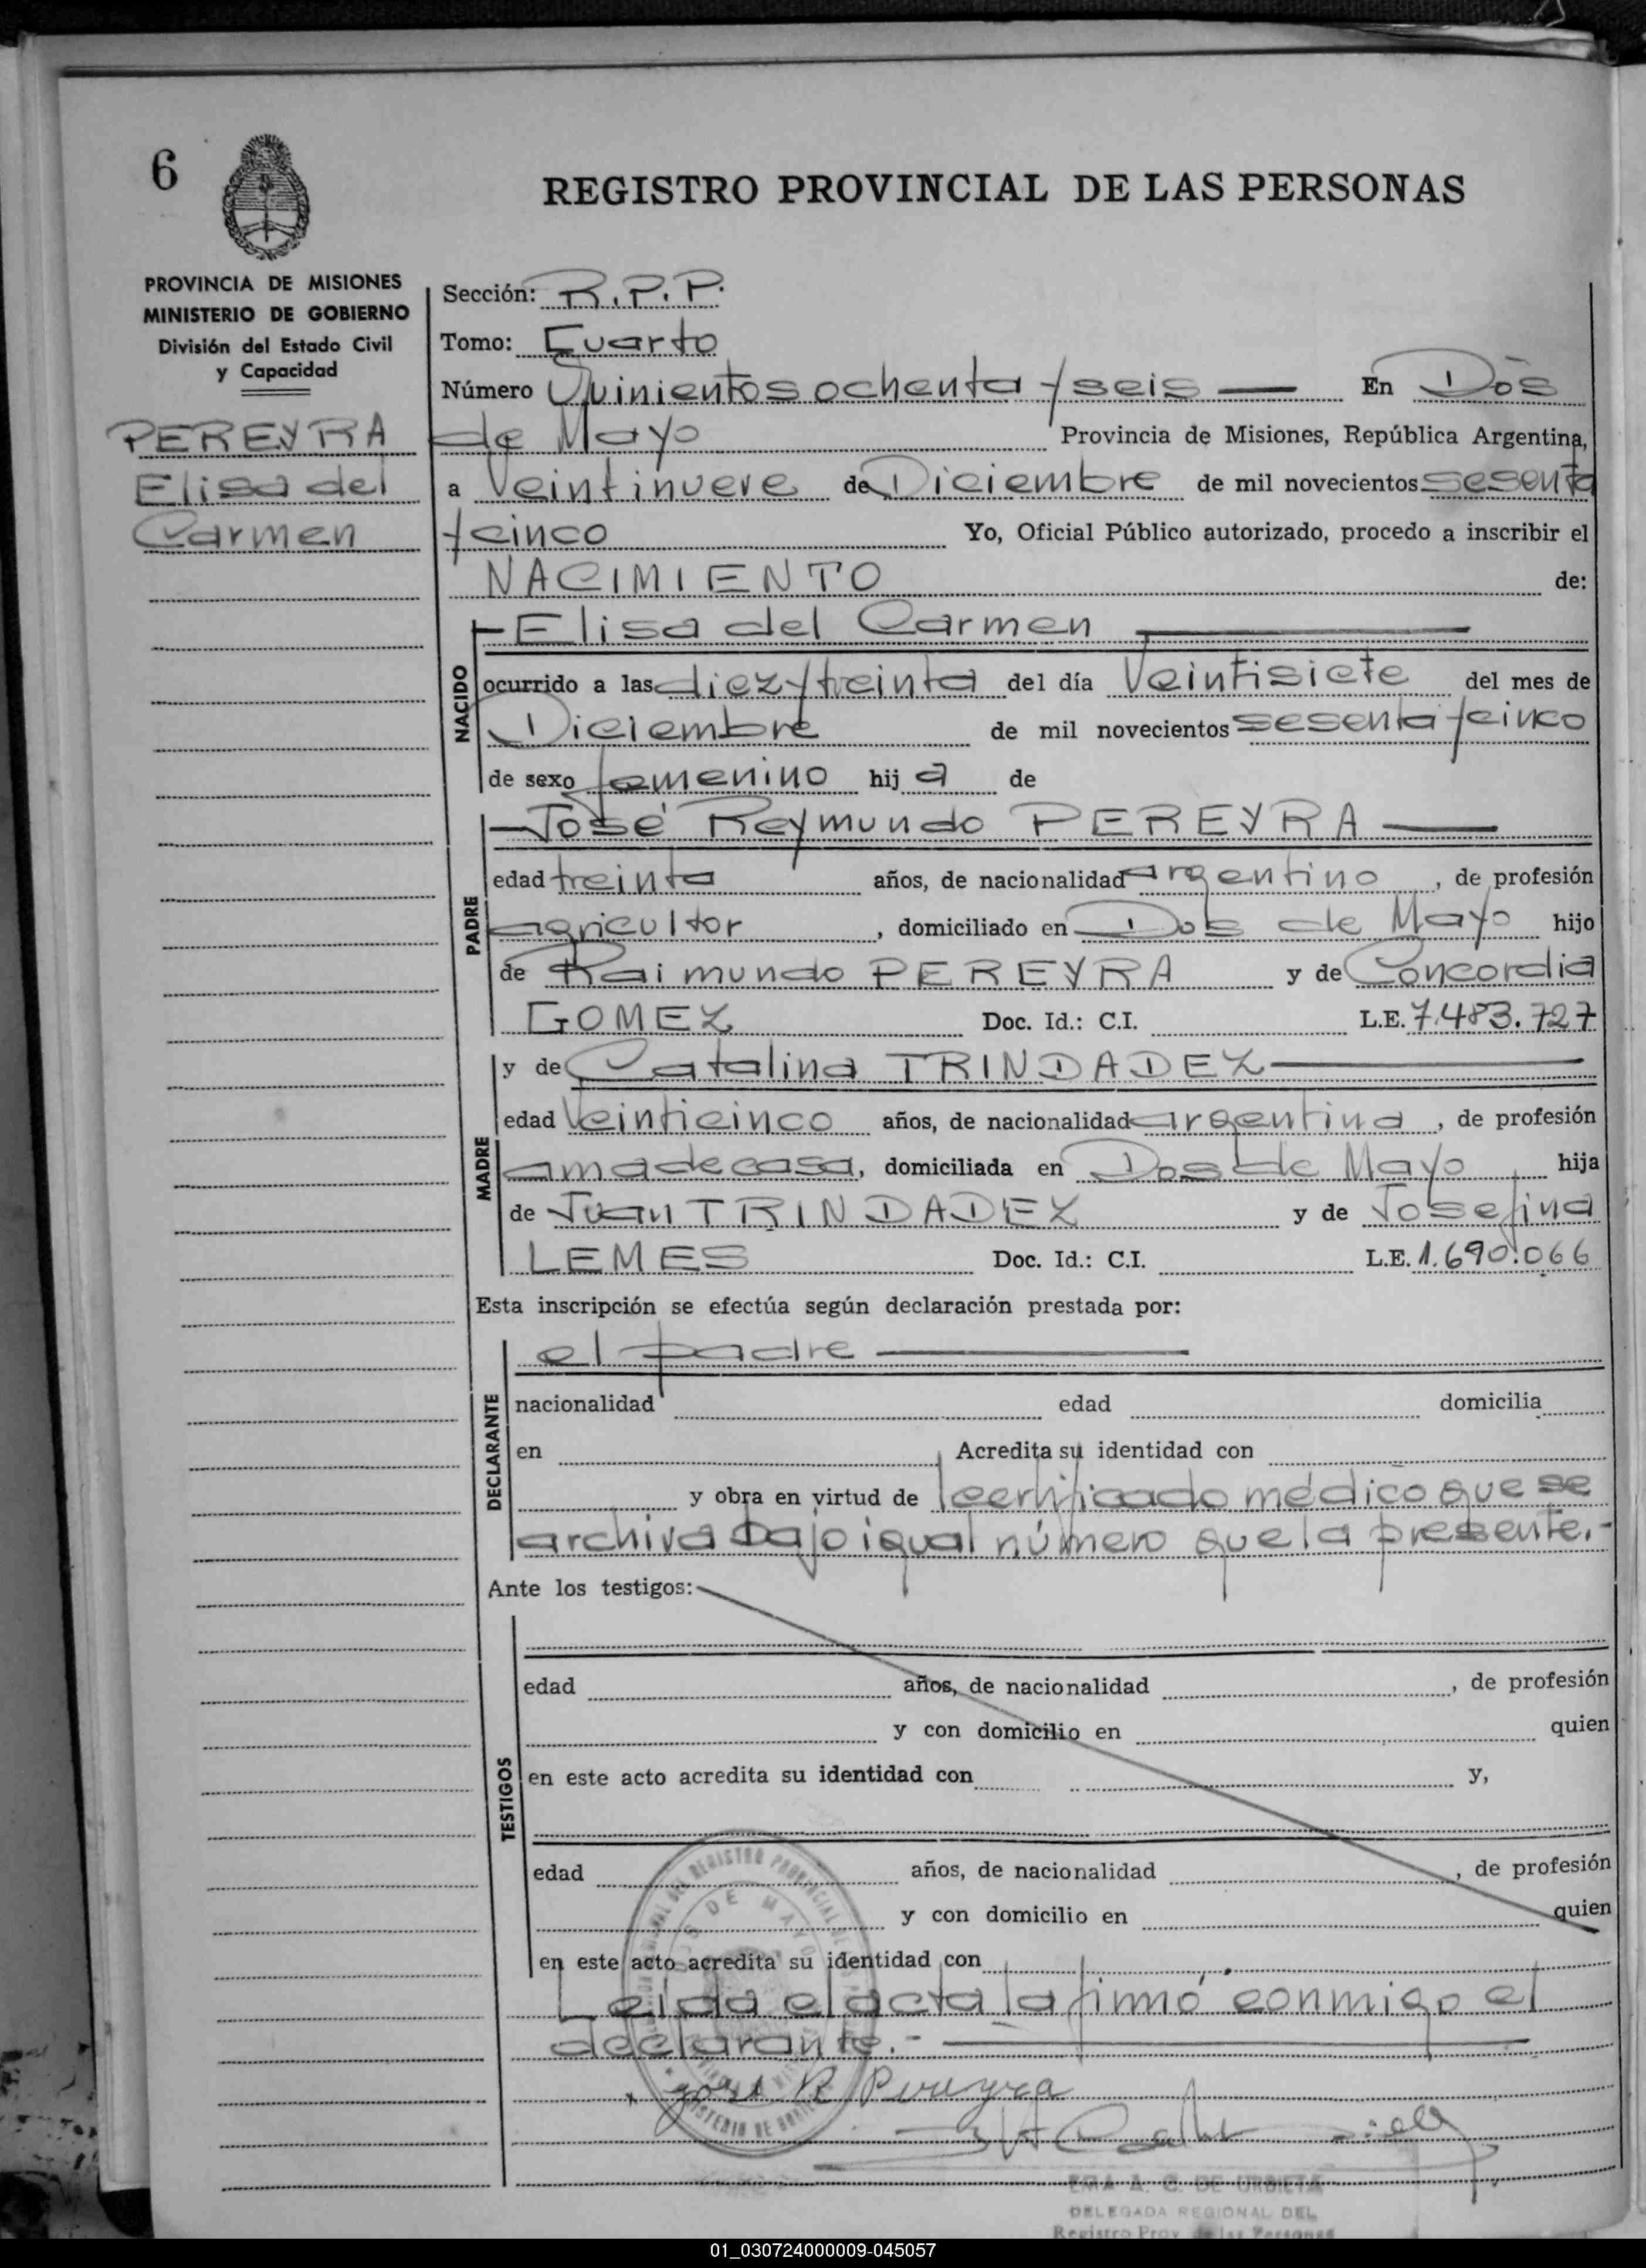 6
REGISTRO PROVINCIAL DE LAS PERSONAS
PROVINCIA DE MISIONES
MINISTERIO DE GOBIERNO
División del Estado Civil
y Capacidad
PEREYRA
Elisa del
Carmen
Sección: R.P.P.
Tomo: Cuarto
Número Quinientos ochenta y seis — En Dos
de Mayo Provincia de Misiones, República Argentina,
a Veintinueve de Diciembre de mil novecientos sesenta
y cinco Yo, Oficial Público autorizado, procedo a inscribir el
NACIMIENTO de:
NACIDO
Elisa del Carmen —
ocurrido a las diez y treinta del día Veintisiete del mes de
Diciembre de mil novecientos sesenta y cinco
de sexo femenino hij a de
PADRE
—José Reymundo PEREYRA —
edad treinta años, de nacionalidad argentino, de profesión
agricultor, domiciliado en Dos de Mayo hijo
de Raimundo PEREYRA y de Concordia
GOMEZ Doc. Id.: C.I. L.E. 7.483.727
MADRE
y de Catalina TRINDADEZ —
edad Veinticinco años, de nacionalidad argentina, de profesión
ama de casa, domiciliada en Dos de Mayo hija
de Juan TRINDADEZ y de Josefina
LEMES Doc. Id.: C.I. L.E. 1.690.066
Esta inscripción se efectúa según declaración prestada por:
DECLARANTE
el padre —
nacionalidad edad domicilia
en Acredita su identidad con
y obra en virtud de certificado médico que se
archiva bajo igual número que la presente.-
Ante los testigos:
TESTIGOS
edad años, de nacionalidad , de profesión
y con domicilio en quien
en este acto acredita su identidad con y,
edad años, de nacionalidad , de profesión
y con domicilio en quien
en este acto acredita su identidad con
Leida el acta la firmó conmigo el
declarante.- —
José R Pereyra
EMA A. C. DE URBIETA
DELEGADA REGIONAL DEL
Registro Prov. de las Personas
01_030724000009-045057